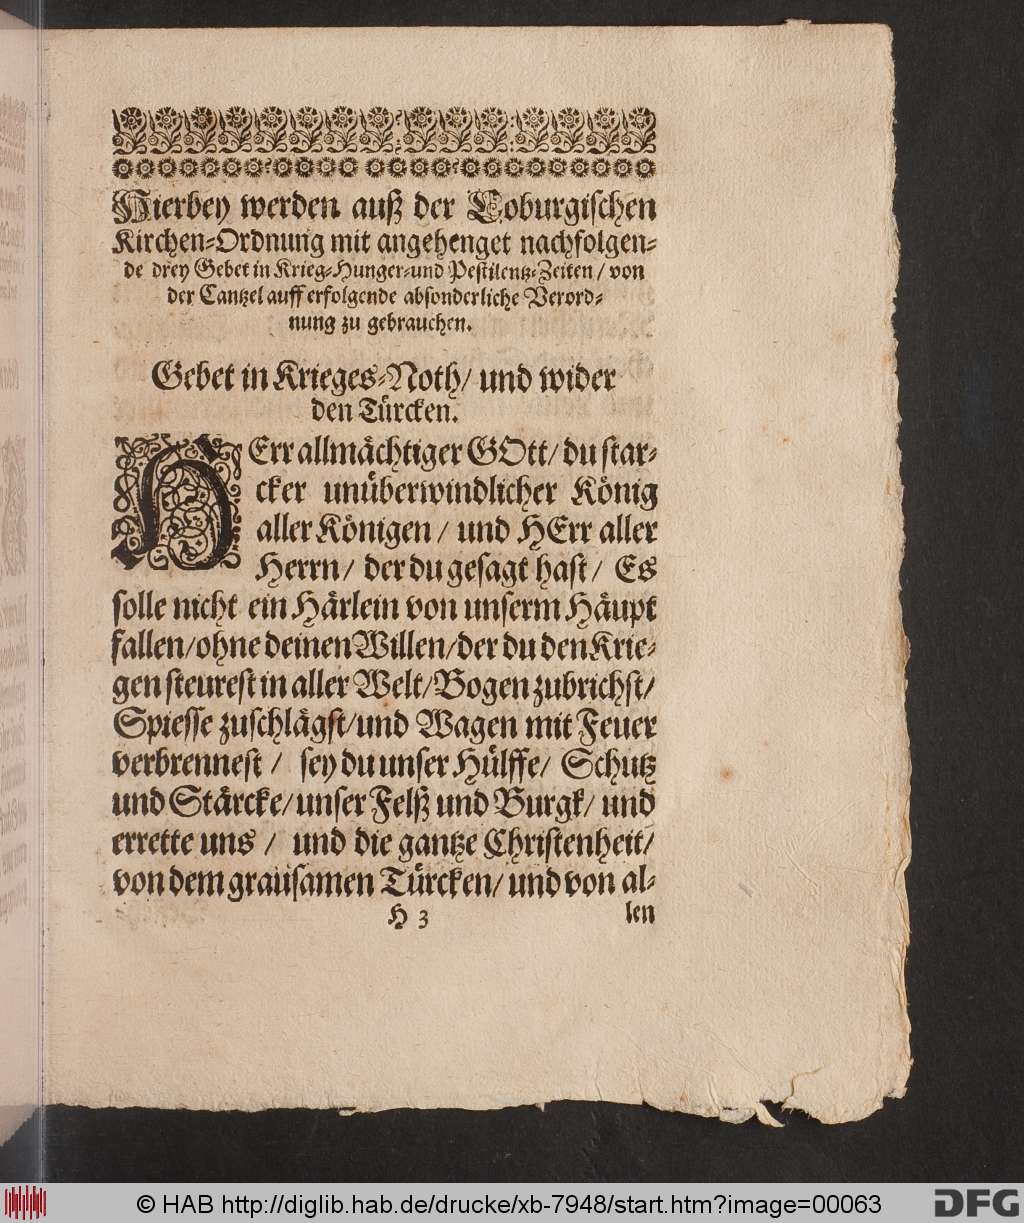 Hierbey werden auß der Coburgischen
Kirchen-Ordnung mit angehenget nachfolgen-
de drey Gebet in Krieg-Hunger-und Pestilentz-Zeiten / von
der Cantzel auff erfolgende absonderliche Verord-
nung zu gebrauchen.
Gebet in Krieges-Noth / und wider
den Türcken.
HErr allmächtiger GOtt / du star-
cker unüberwindlicher König
aller Königen / und HErr aller
Herrn / der du gesagt hast / Es
solle nicht ein Härlein von unserm Häupt
fallen / ohne deinen Willen / der du den Krie-
gen steurest in aller Welt / Bogen zubrichst /
Spiesse zuschlägst / und Wagen mit Feuer
verbrennest / sey du unser Hülffe / Schutz
und Stärcke / unser Felß und Burgk / und
errette uns / und die gantze Christenheit /
von dem grausamen Türcken / und von al-
H 3 len
© HAB http://diglib.hab.de/drucke/xb-7948/start.htm?image=00063
DFG